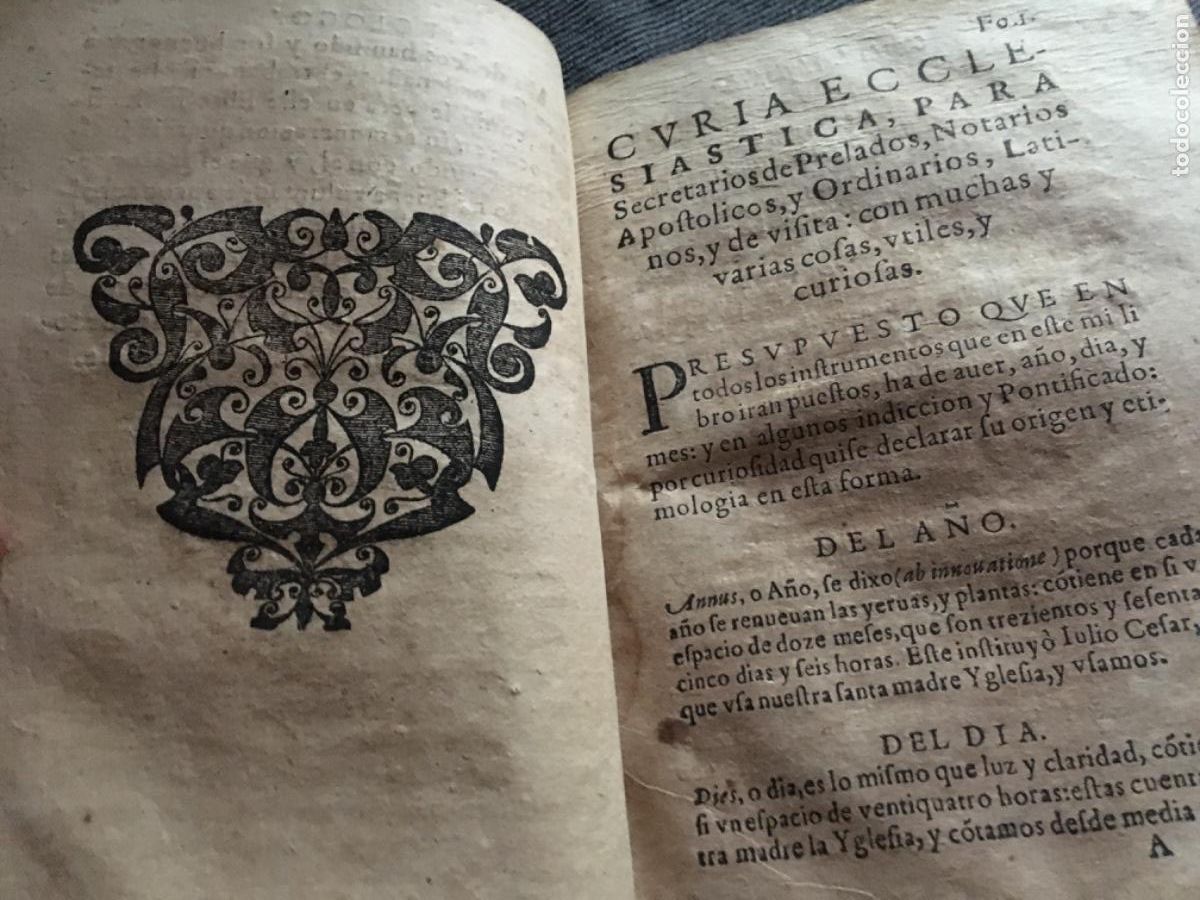 Fo.1.
CVRIA ECCLE-
SIASTICA, PARA
Secretarios de Prelados, Notarios
Apoſtolicos, y Ordinarios, Lati-
nos, y de viſita: con muchas y
varias coſas, vtiles, y
curioſas.
PRESVPVESTO QVE EN
todos los inſtrumentos que en eſte mi li
bro iran pueſtos, ha de auer, año, dia, y
mes: y en algunos indiccion y Pontificado:
por curioſidad quiſe declarar ſu origen y eti-
mologia en eſta forma.
DEL AÑO.
Annus, o Año, ſe dixo (ab innouatione) porque cada
año ſe renueuan las yeruas, y plantas: cótiene en ſi v
eſpacio de doze meſes, que ſon trezientos y ſeſenta
cinco dias y ſeis horas. Eſte inſtituyò Iulio Ceſar,
que vſa nueſtra ſanta madre Ygleſia, y vſamos.
DEL DIA.
Dies, o dia, es lo miſmo que luz y claridad, cóti
ſi vn eſpacio de ventiquatro horas: eſtas cuent
tra madre la Ygleſia, y cótamos deſde media
A
todocoleccion